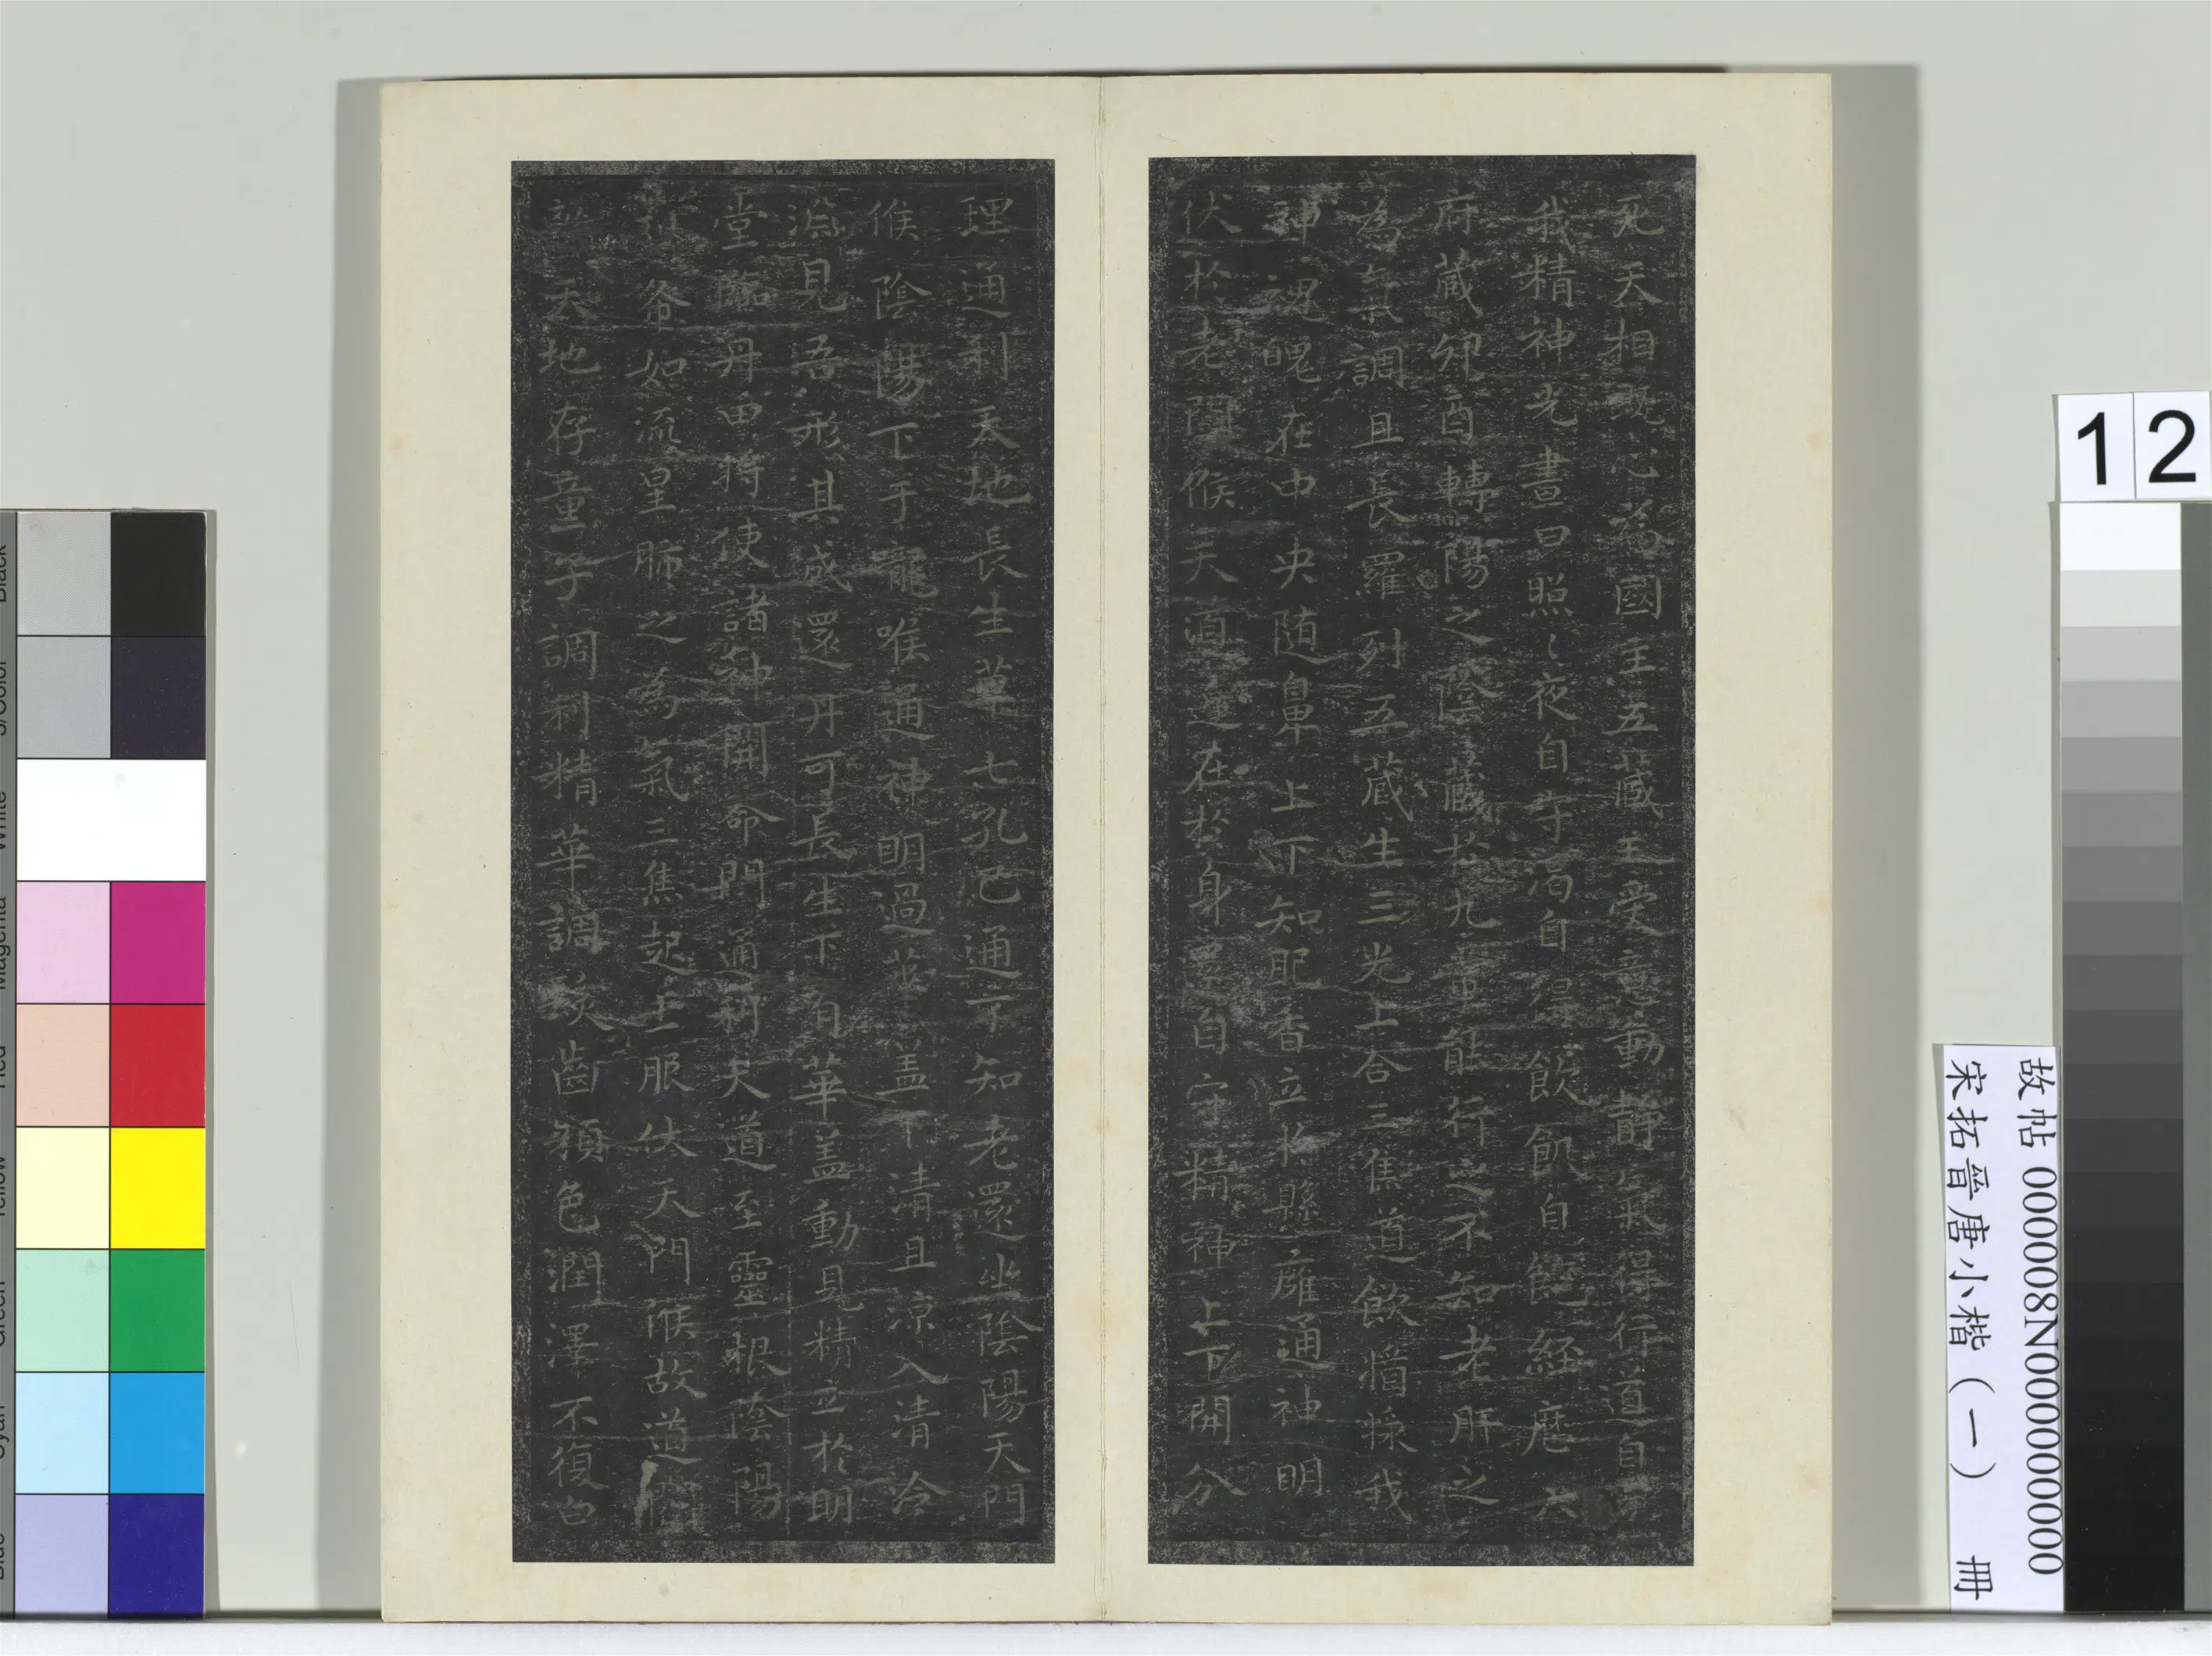 天相既心為國主五藏王受意動静氣得行道自守
我精神光晝日照〻夜自守渇自得飲飢自飽経歷六
府藏卯酉轉陽之陰藏於九常能行之不知老肝之
為氣調且長羅列五藏生三光上合三焦道飲醬漿我
神魂魄在中央随鼻上下知肥香立於縣廱通神明
伏於老門候天道近在於身還自守精神上下開分
理通利天地長生草七孔已通不知老還坐陰陽天門
候陰陽下于嚨喉通神明過華盖下清且凉入清冷
淵見吾形其成還丹可長生下有華盖動見精立於明
堂臨丹田將使諸神開命門通利天道至靈根陰陽
列布如流星肺之為氣三焦起上服伏天門候故道闚
天地存童子調利精華調髮齒顏色潤澤不復白
12
故帖 000008N000000000
宋拓晉唐小楷(一) 冊
Black
3/Color
White
Magenta
Red
Yellow
Green
Cyan
Blue